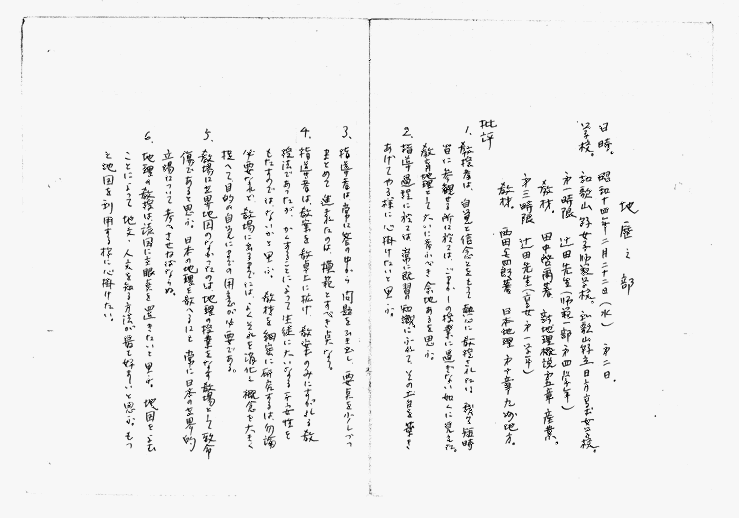 地歴之部
日時。 昭和十四年二月二十二日（水） 第二日。
学校。 和歌山県女子師範学校。和歌山県立日方高等女学校。
第一時限 辻田先生（師範一部第四学年）
教材。 田中啓爾著 新地理概説 五章 産業。
第三時限 辻田先生（高女第一学年）
教材。 西田与四郎著 日本地理 第十章 九州地方。
批評
1. 教授者は、自覚と信念とをもて熱心に教授されたい。我々短時
間に参観せる所に於ては、ごまかしの授業に過ぎない如くに覚えた。
教育地理として大いに考ふべき余地あると思ふ。
2. 指導過程に於ては、常に既習知識にふれて、その土台を築き
あげてやる様に心掛けたいと思ふ。
3. 指導者は常に答の中から問題を引き出し、要点を少しづつ
まとめて進まれたのは、模範とすべき点なり。
4. 指導者は、教案を教卓上に拡げ、教案のみにすがれる教
授法であったが、かくすることによって生徒に大いなる不安性を
もたすのではないかと思ふ。教材を細密に研究するは勿論
必要なれど、教場に出るまでには、よくそれを消化し概念を大きく
捉へて目的の自覚にまでの用意が必要である。
5. 教場に世界地図のなかったのは地理の授業をなす教場として致命
傷であると思ふ。日本の地理を教へるにも常に日本の世界的
立場について考へさせねばならぬ。
6. 地理の教授は該図に主眼点を置きたいと思ふ。地図をよむ
ことによって地文、人文を知る方法が最も好ましいと思ふ。もつ
と地図を利用する様に心掛けたい。